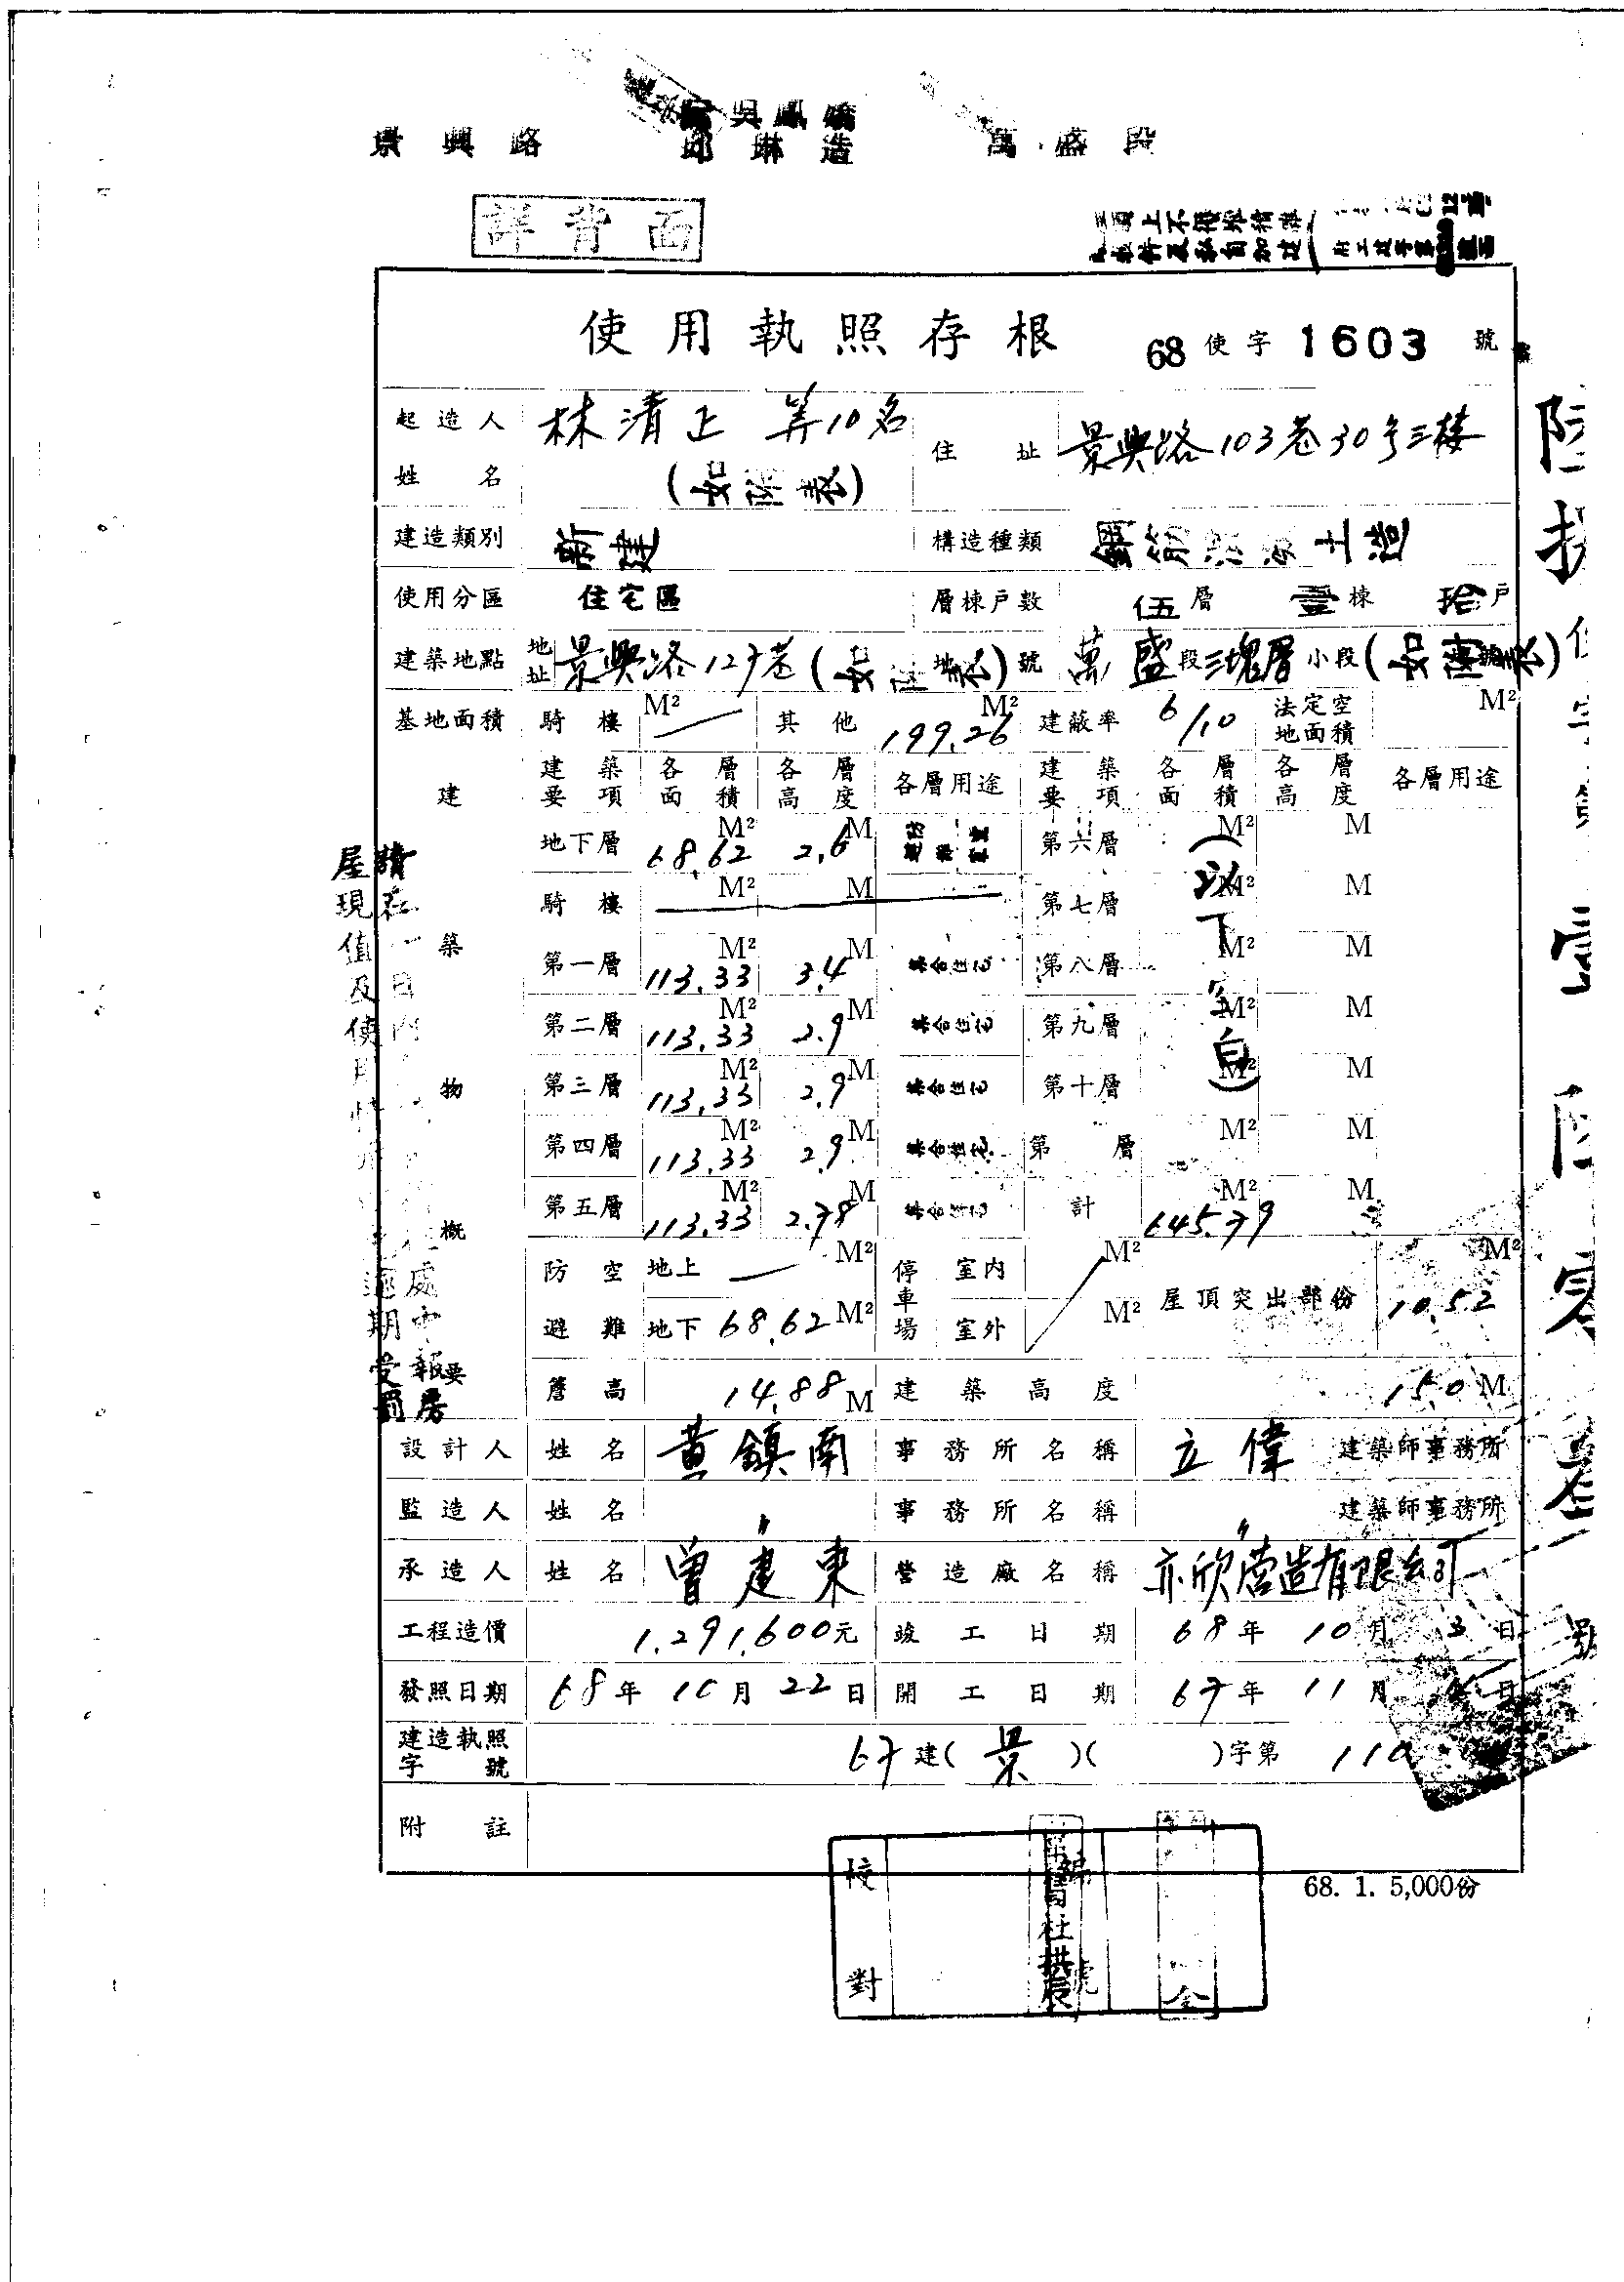 景興路 邱琳造 萬盛段
詳背面
使用執照存根 68使字1603號
起造人姓名 林清正 等10名 (如附表) 住址 景興路103巷30号三樓
建造類別 新建 構造種類 鋼筋混凝土造
使用分區 住宅區 層棟戶數 伍層 壹棟 拾戶
建築地點 地址 景興路127巷 地號 萬盛段三塊厝小段
基地面積 騎樓 M² — 其他 199.26 M² 建蔽率 6/10 法定空地面積 M²
建築物概要
建築要項 各層面積 各層高度 各層用途 建築要項 各層面積 各層高度 各層用途
地下層 68.62 M² 2.6 M 第六層 M² M
騎樓 M² M 第七層 M² M
第一層 113.33 M² 3.4 M 集合住宅 第八層 M² M
第二層 113.33 M² 2.9 M 集合住宅 第九層 M² M
第三層 113.33 M² 2.9 M 集合住宅 第十層 M² M
第四層 113.33 M² 2.9 M 集合住宅 第 層 M² M
第五層 113.33 M² 2.78 M 集合住宅 計 645.79 M² M
(以下空白)
防空避難 地上 — M² 停車場 室內 M² 屋頂突出部份 10.52 M²
地下 68.62 M² 室外 M²
簷高 14.88 M 建築高度 15.0 M
設計人 姓名 黃鎮南 事務所名稱 立偉 建築師事務所
監造人 姓名 〃 事務所名稱 〃 建築師事務所
承造人 姓名 曾建東 營造廠名稱 亦欣營造有限公司
工程造價 1,291,600元 竣工日期 68年10月3日
發照日期 68年10月22日 開工日期 67年11月 日
建造執照字號 67建(景)( )字第110
附註
68. 1. 5,000份
校對 號